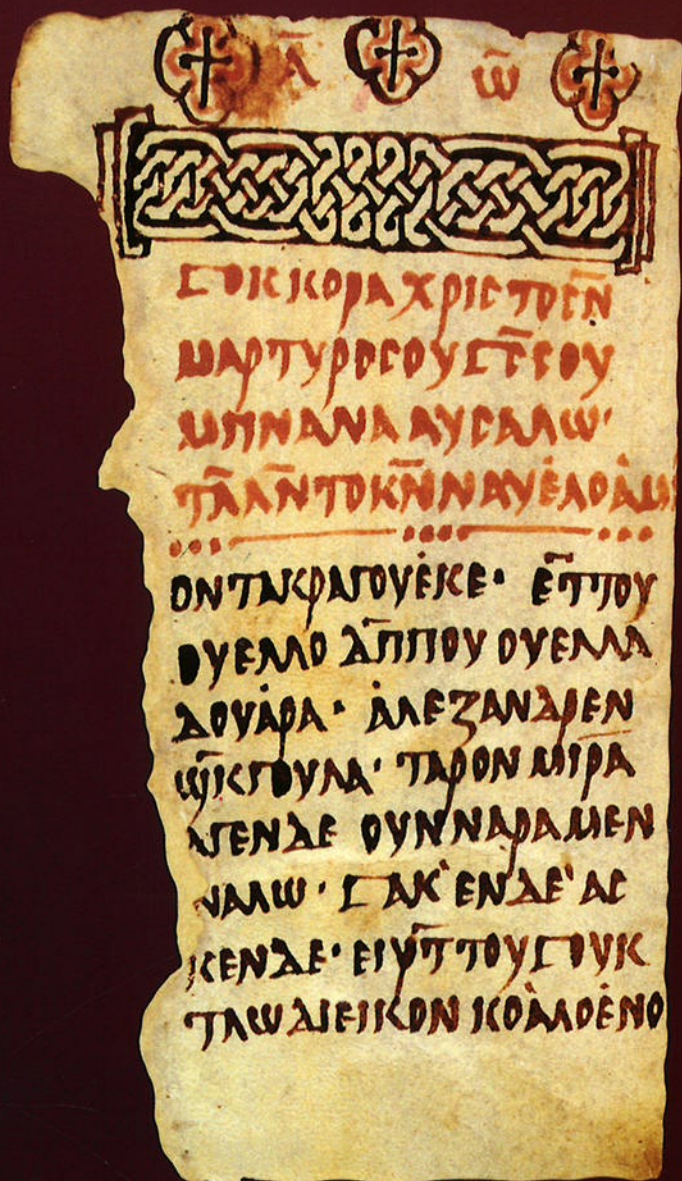 ⲁ̄ ⲱ̄
ⳟⲟⲕⲕⲟⲣⲁ ⲭⲣⲓⲥⲧⲟⲥⲛ̄
ⲙⲁⲣⲧⲩⲣⲟⲥⲟⲩ ⳟⲥ̄ⲥⲟⲩ
ⲙⲏⲛⲁⲛⲁ ⲁⲩⲥⲁⲗⲱ·
ⲧⲁ̄ⲗⲗⲛ̄ ⲧⲟⲕⲛ̄ⲛⲁⲩⲉ̀ⲗⲟ ⲁ̀ⲙⲏ
ⲟⲛ ⲧⲁⲕⲣⲁⲅⲟⲩⲉ̀ⲕⲉ· ⲉⲓ̄ⲧⲧⲟⲩ
ⲟⲩⲉⲗⲗⲟ ⲁ̄ⲡⲡⲟⲩ ⲟⲩⲉⲗⲗⲁ
ⲇⲟⲩⲁ̀ⲣⲁ· ⲁ̀ⲗⲉⲝⲁⲛⲇⲣⲉⲛ
ϣ̄ⲕⲅⲟⲩⲗⲁ· ⲧⲁⲣⲟⲛ ⲙⲓⲣ̄ⲁ
ⲁⲅⲉⲛⲇⲉ ⲟⲩⲛⲛⲁⲣⲁ ⲙⲉⲛ
ⲛⲁⲗⲱ· ⳟⲁⲕ̀ ⲉⲛⲇⲉ̀ ⲁⲥ
ⲕⲉⲛⲇⲉ· ⲉⲓϣ̄ⲧⲧⲟⲩ ⳟⲟⲩⲕ
ⲧⲗⲱ ⲇⲓⲉⲓⲕⲟⲛ ⲕⲟⲁ̀ⲗⲟ ⲉ̀ⲛⲟ